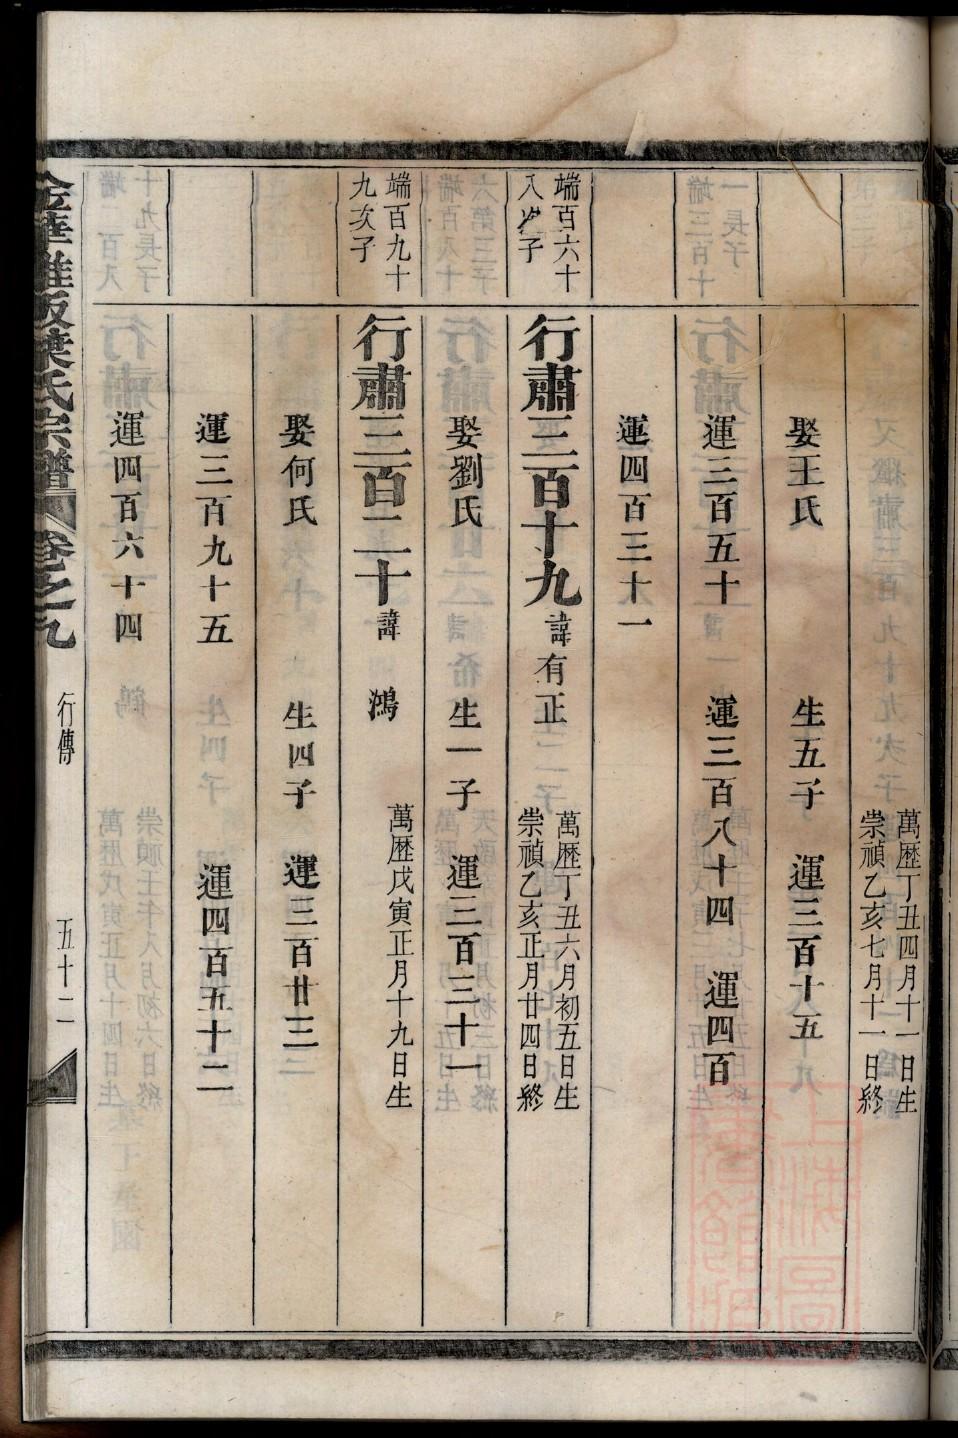 萬歷丁丑四月十一日生
崇禎乙亥七月十一日終
娶王氏 生五子 運三百十五
運三百五十 運三百八十四 運四百
運四百三十一
端百六十
八次子
行肅三百十九 諱有正
萬歷丁丑六月初五日生
崇禎乙亥正月廿四日終
娶劉氏 生一子 運三百三十一
端百九十
九次子
行肅三百二十 諱 鴻
萬歷戊寅正月十九日生
娶何氏 生四子 運三百廿三
運三百九十五 運四百五十二
運四百六十四
葉氏宗譜 卷之九 行傳 五十二